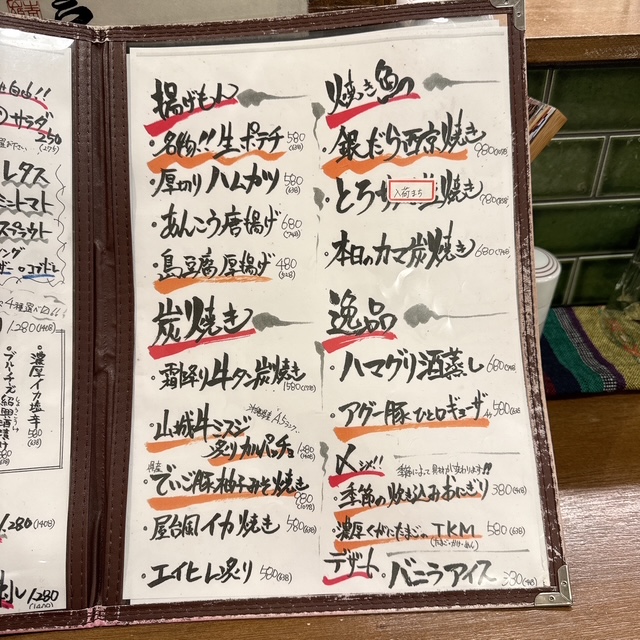 サラダ
250
(275)
レタス
ミニトマト
1,280(1408)
濃厚イカ塩辛
580
(638)
1,280(1408)
1,280
(1408)
揚げもん
・名物!!生ポテチ 580(638)
・厚切りハムカツ 580(638)
・あんこう唐揚げ 680(748)
・島豆腐厚揚げ 480(528)
炭焼き
・霜降り牛タン炭焼き 1580(1738)
・山城牛ミスジ
炙りカルパッチョ 1280(1408)
・でいご豚柚子みそ焼き 980(1078)
・屋台風イカ焼き 580(638)
・エイヒレ炙り 580(638)
焼き魚
・銀だら西京焼き 980(1078)
・とろ
入荷まち
焼き 780(858)
・本日のカマ炭焼き 680(748)
逸品
・ハマグリ酒蒸し 680(748)
・アグー豚ひとロギョーザ 4ヶ 580(638)
〆
季節によって具材が変わります!!
・季節の炊き込みおにぎり 380(418)
・濃厚くがにたまごのTKM 580(638)
(たまご・かけ・めん)
デザート
・バニラアイス 330(363)